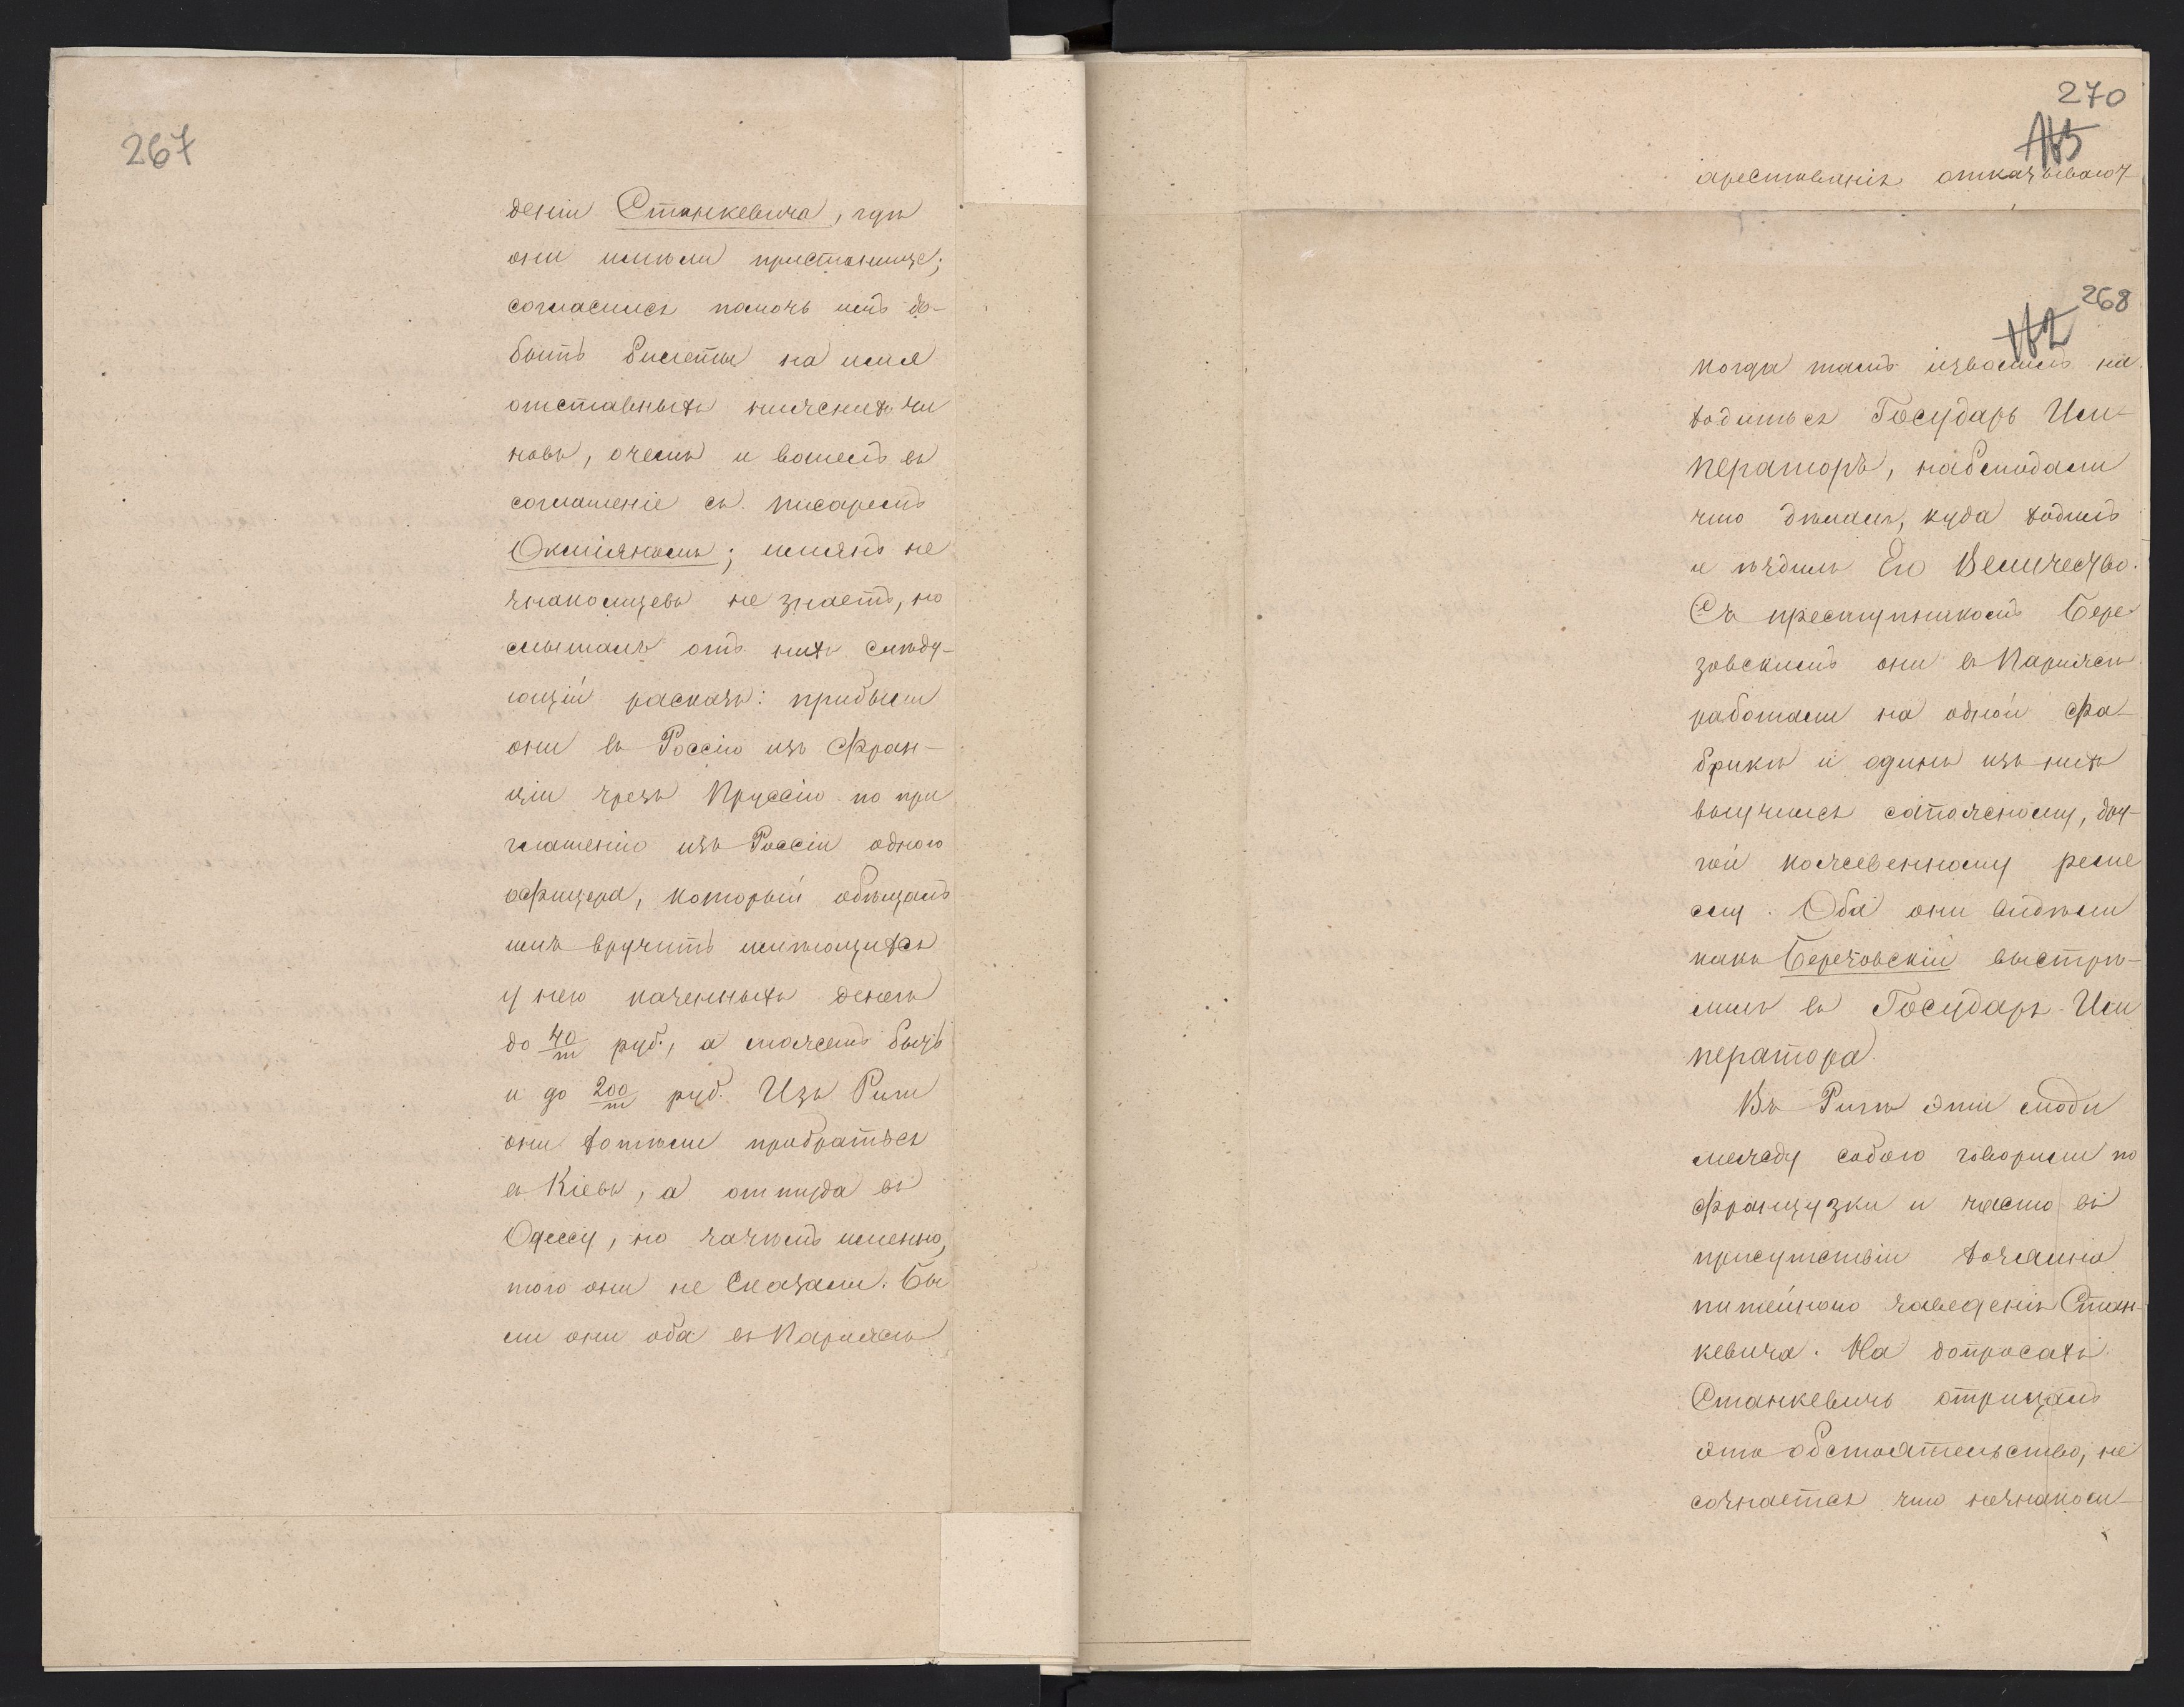 267
деніи Станкевича, гдѣ
они имѣли пристанище;
согласился помочь имъ до-
быть билеты на имя
отставныхъ нижнихъ чи
новъ, о чемъ и вошелъ въ
соглашеніе съ писаремъ
Окмiяномъ; именъ не
знакомцевъ не знаетъ, но
слышалъ отъ нихъ слѣду-
ющій расказъ: прибыли
они въ Россію изъ Фран-
ціи чрезъ Пруссію по при
глашенію изъ Россіи одного
офицера, который обѣщалъ
имъ вручить имѣющихся
у него казенныхъ денегъ
до 40/т руб., а можетъ быть
и до 200/т руб. Изъ Риги
они хотѣли пробраться
въ Кіевъ, а оттуда въ
Одессу, но зачѣмъ именно,
того они не сказали. Бы
ли они оба въ Парижѣ
270
арестованія отказывают
268
когда тамъ изволилъ на
ходиться Государь Им-
ператоръ, наблюдали
что дѣлалъ, куда ходилъ
и ѣздилъ Его Величество.
Съ преступникомъ Бере
зовскимъ они въ Парижѣ
работали на одной фа-
брикѣ и одинъ изъ нихъ
выучился сапожному, дру-
гой кожевенному реме
слу. Оба они видѣли
какъ Березовскій выстрѣ-
лилъ въ Государя Им
ператора.
Въ Ригѣ эти люди
между собою говорили по
французки и часто въ
присутствіи хозяина
питейнаго заведенія Стан-
кевича. На допросахъ
Станкевичъ отрицалъ
это обстоятельство, не
сознается что незнаком-